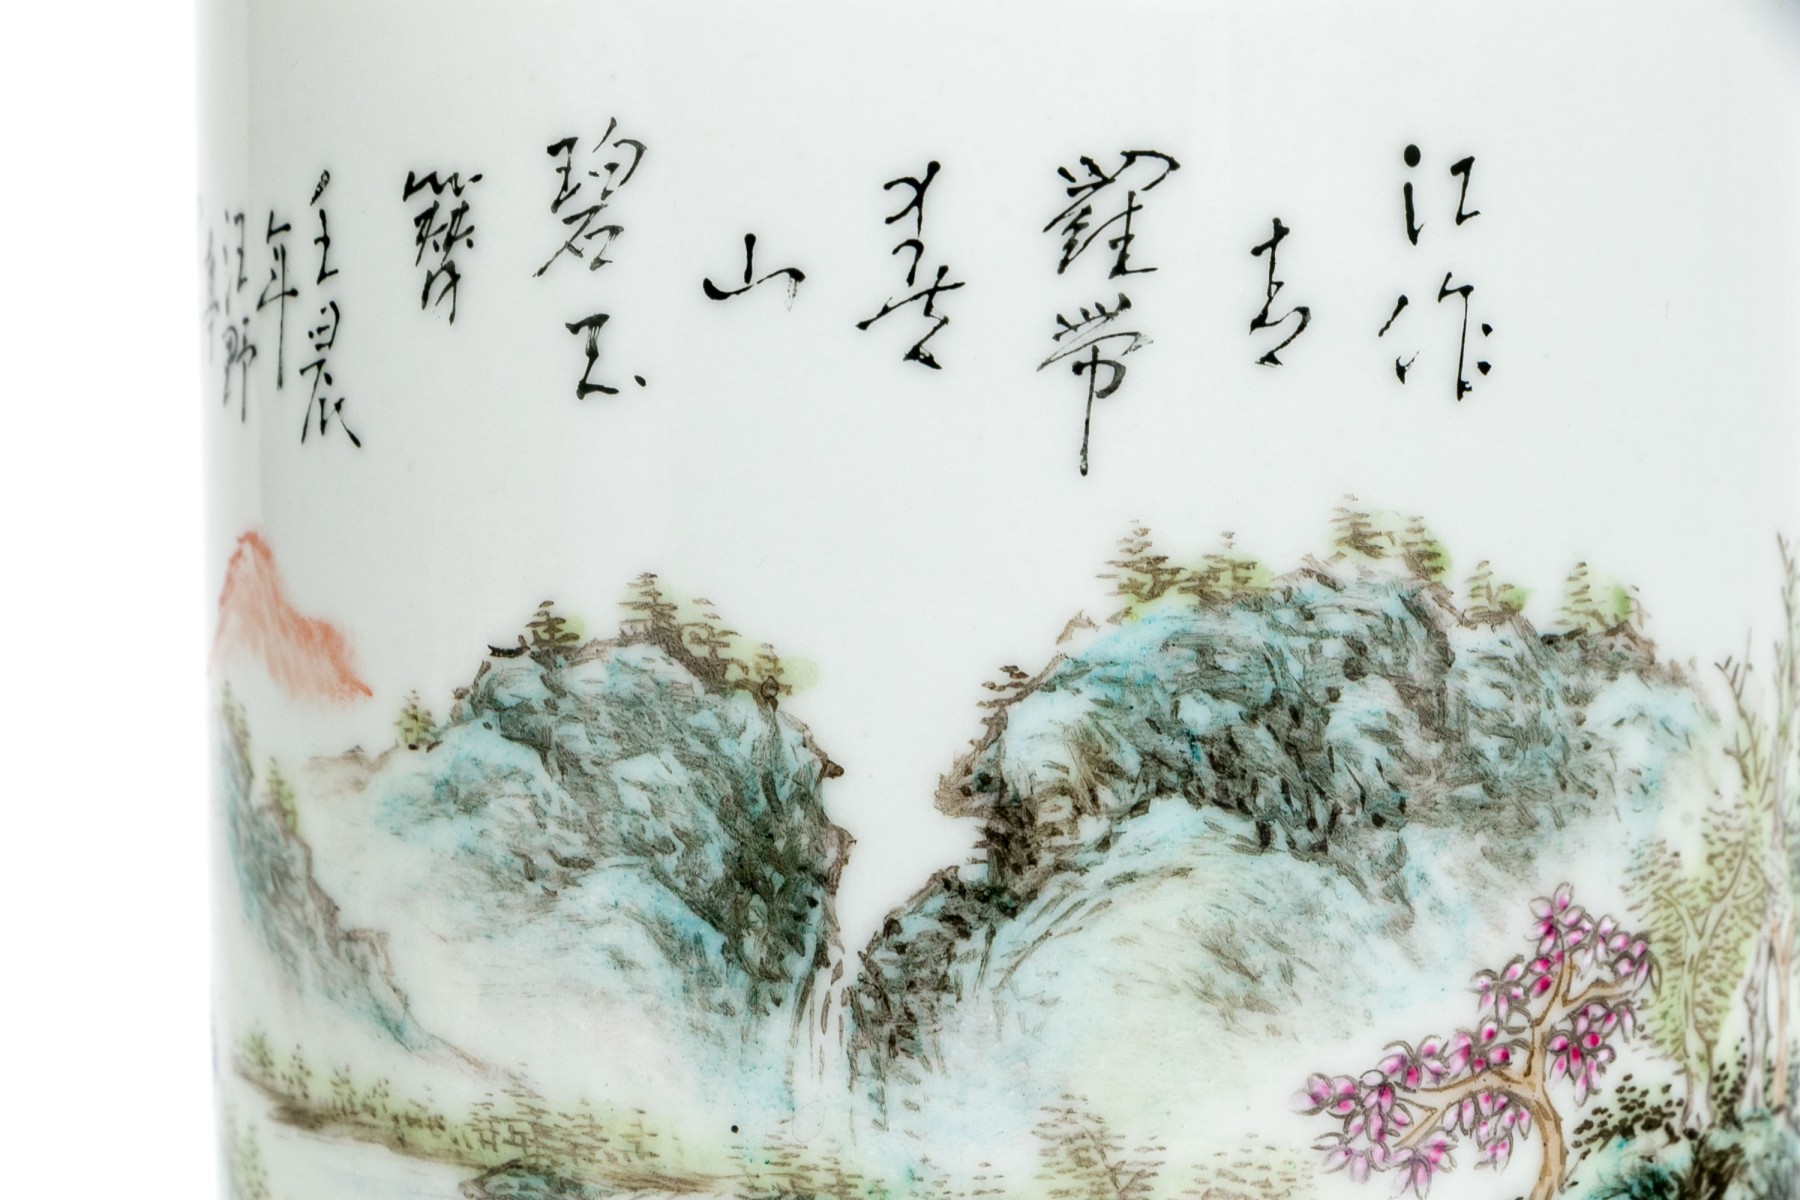 江作
青
羅帶
山
碧玉
簪
壬晨
年
汪野